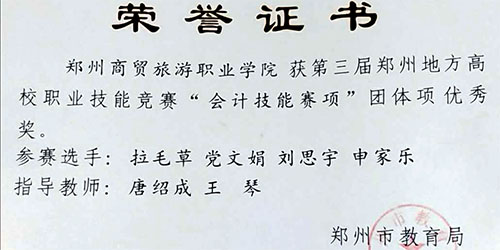 荣誉证书
郑州商贸旅游职业学院 获第三届郑州地方高
校职业技能竞赛“会计技能赛项”团体项优秀
奖。
参赛选手：拉毛草 党文娟 刘思宇 申家乐
指导教师：唐绍成 王 琴
郑州市教育局